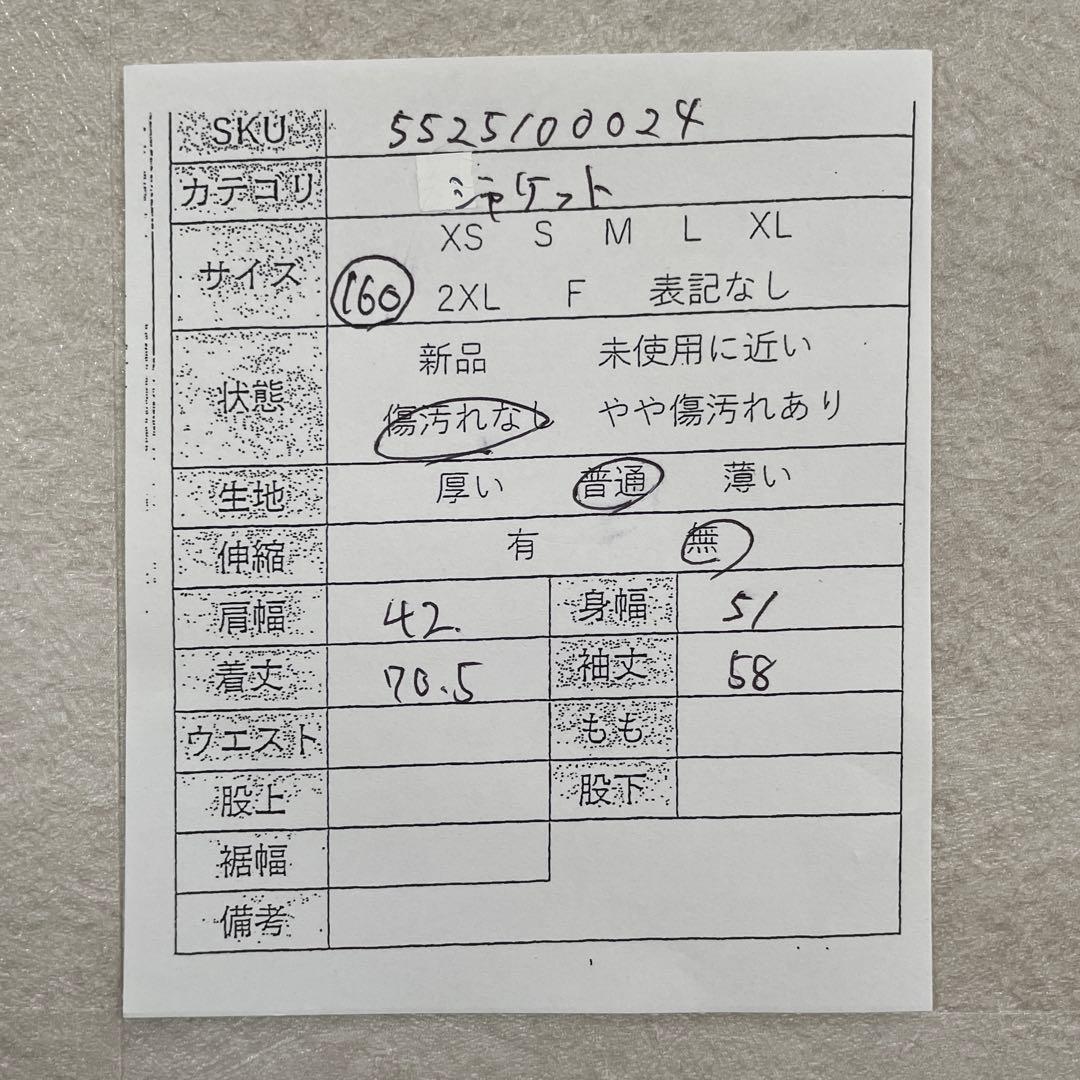 SKU 5525100024
カテゴリ ジャケット
サイズ XS S M L XL
160 2XL F 表記なし
状態 新品 未使用に近い
傷汚れなし やや傷汚れあり
生地 厚い 普通 薄い
伸縮 有 無
肩幅 42. 身幅 51
着丈 70.5 袖丈 58
ウエスト もも
股上 股下
裾幅
備考